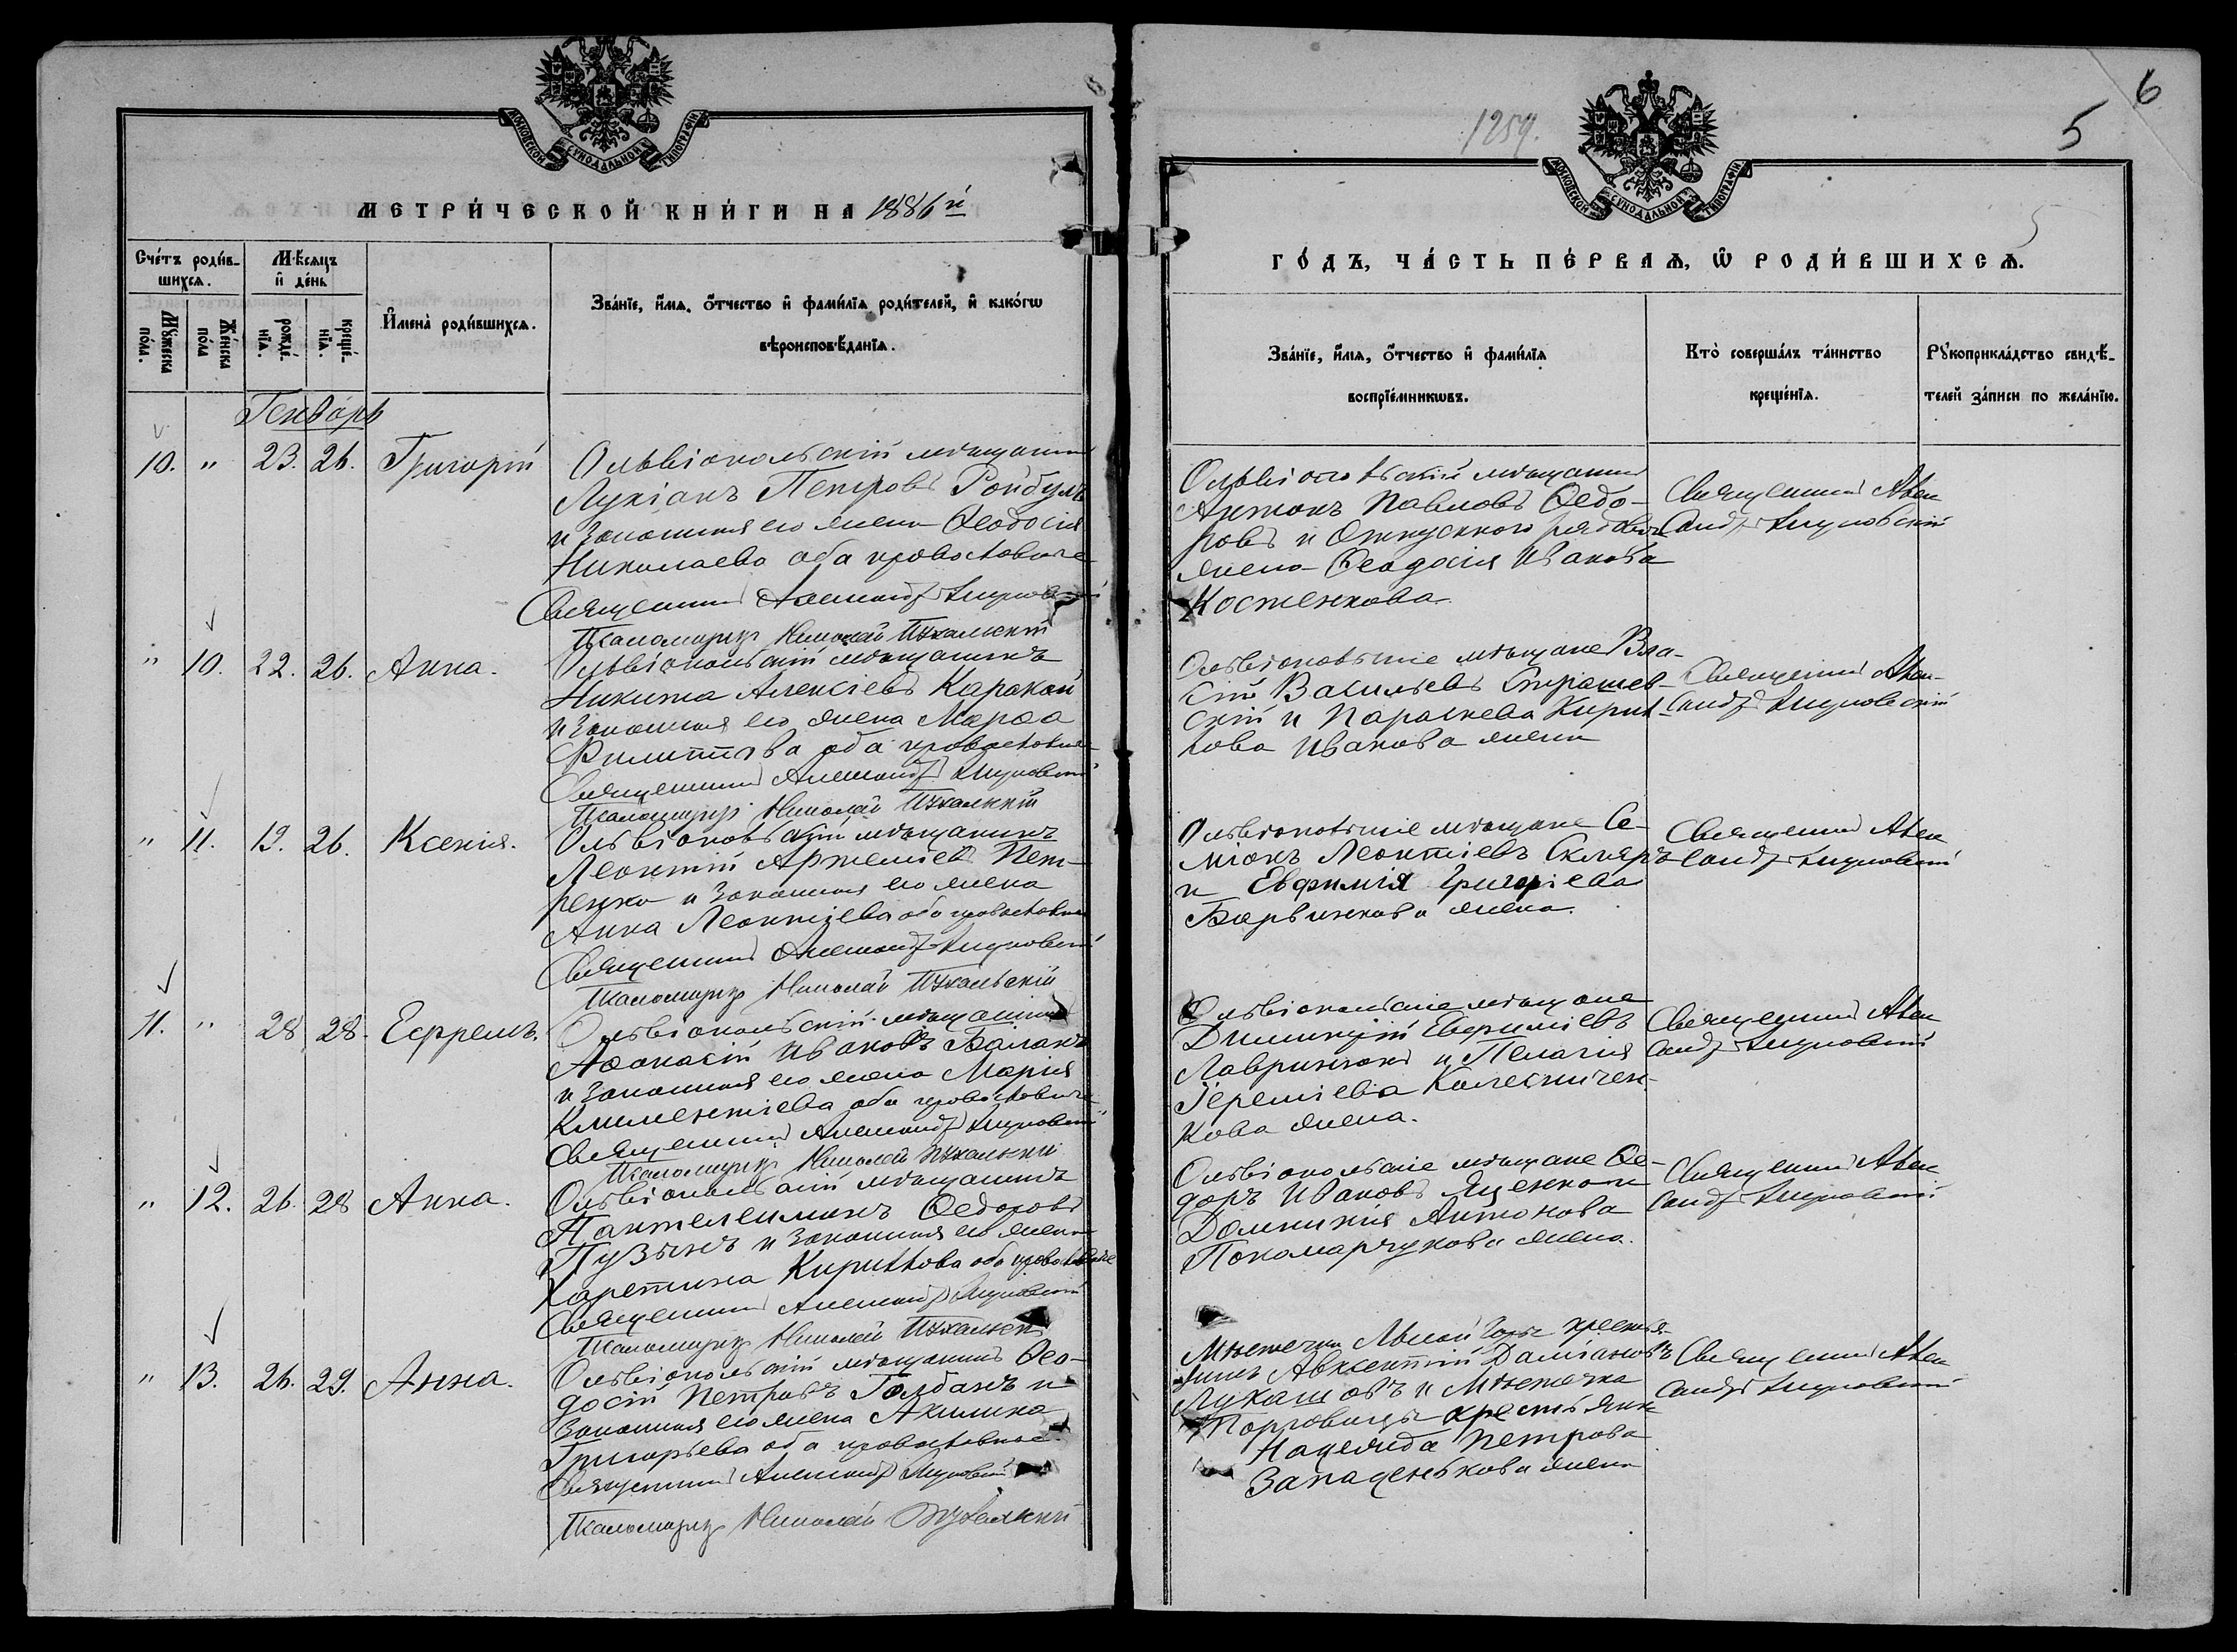 МОСКОВСКОЙ СѴНОДАЛЬНОЙ ТИПОГРАФІИ
МЕТРИ́ЧЕСКОЙ КНИ́ГИ НА 1886 й
Сче́тъ роди́в-
шихсѧ.
Мѣ́сѧцъ
и҆ де́нь
Мꙋ́жеска
по́ла.
Же́нска
по́ла
рожде́-
нїѧ.
креще́-
нїѧ.
И҆мена̀ роди́вшихсѧ.
Зва́нїе, и҆́мѧ, ѻ҆́тчество и҆ фами́лїѧ роди́телей, и҆ како́гѡ
вѣроисповѣ́данїѧ.
Генварь
10. " 23. 26. Григорій
Ольвіопольскій мѣщанинъ
Лукіанъ Петровъ Ройбулъ
и законная его жена Ѳеодосія
Николаева оба православные
Священникъ Александръ
Псаломщикъ Николай Пухальскій
" 10. 22. 26. Анна.
Ольвіопольскій мѣщанинъ
Никита Алексіевъ Каракай
и законная его жена Марѳа
Филиппова оба православные
Священникъ Александръ
Псаломщикъ Николай Пухальскій
" 11. 19. 26. Ксенія.
Ольвіопольскій мѣщанинъ
Леонтій Артеміевъ Пет-
ренко и законная его жена
Анна Леонтіева оба православные
Священникъ Александръ
Псаломщикъ Николай Пухальскій
11. " 28 28. Ефремъ.
Ольвіопольскій мѣщанинъ
Аѳанасій Ивановъ Баланъ
и законная его жена Марія
Климентіева оба православные
Священникъ Александръ
Псаломщикъ Николай Пухальскій
" 12. 26. 28 Анна.
Ольвіопольскій мѣщанинъ
Пантелеимонъ Ѳедоровъ
Пузынъ и законная его жена
Харетина Кириллова оба православные
Священникъ Александръ
Псаломщикъ Николай Пухальскій
" 13. 26. 29. Анна.
Ольвіопольскій мѣщанинъ Ѳео-
досій Петровъ Голбанъ и
законная его жена Акилина
Григорьева оба православные.
Священникъ Александръ
Псаломщикъ Николай Пухальскій
1259.
5
6
5
МОСКОВСКОЙ СѴНОДАЛЬНОЙ ТИПОГРАФІИ
ГО́ДЪ, ЧА́СТЬ ПЕ́РВАѦ, Ѡ҆ РОДИ́ВШИХСѦ.
Зва́нїе, и҆́мѧ, ѻ҆́тчество и҆ фами́лїѧ
воспрїе́мникѡвъ.
Кто̀ соверша́лъ та́инство
креще́нїѧ.
Рꙋкоприкла́дство свидѣ́-
телей за́писи по жела́нїю.
Ольвіопольскій мѣщанинъ
Антонъ Павловъ Ѳедо-
ровъ и Отпускного рядового
жена Ѳеодосія Иванова
Костенкова.
Священникъ Алек-
сандръ
Ольвіопольскіе мѣщане Вла-
сій Васильевъ Сырашев-
скій и Параскева Кирил-
лова Иванова жена
Священникъ Алек-
сандръ
Ольвіопольскіе мѣщане Си-
міонъ Леонтіевъ Скляръ
и Евфимія Григоріева
Барвинкова жена.
Священникъ Алек
сандръ
Ольвіопольскіе мѣщане
Димитрій Евфиміевъ
Лавринюкъ и Пелагія
Іереміева Колесничен-
кова жена.
Священникъ Алек
сандръ
Ольвіопольскіе мѣщане Ѳе-
доръ Ивановъ Яценко и
Домникія Антонова
Пономарчукова жена.
Священникъ Алек
сандръ
Мѣстечка Лысой Горы крестья-
нинъ Авксентій Даміановъ
Лукашовъ и Мѣстечка
Торговицы крестьянк
Надежда Петрова
Западенькова жена
Священникъ Алек
сандръ